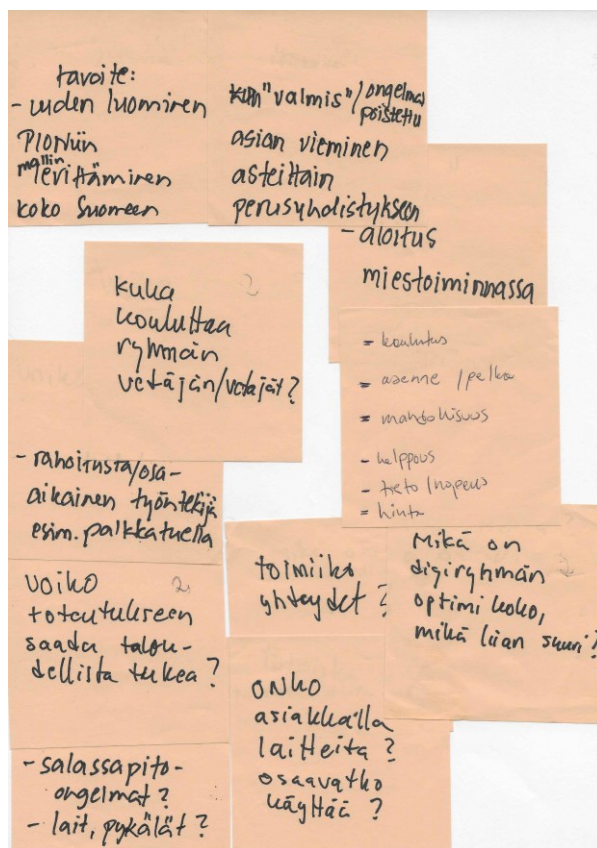 tavoite:
- uuden luominen
PIONEN
mallin
levittäminen
koko Suomeen
kun "valmis"/ongelmat
poistettu
asian vieminen
asteittain
perusyhdistykseen
- aloitus
miestoiminnassa
kuka 2
kouluttaa
ryhmän
vetäjän/vetäjät?
= koulutus
= asenne / pelko
= mahdollisuus
- helppous
- tieto / nopeus
= hinta
- rahoitusta/osa-
aikainen työntekijä
esim. palkkatuella
voiko 2
toteutukseen
saada talou-
dellista tukea?
toimiiko
yhteydet?
Mikä on
digiryhmän 2
optimi koko,
mikä liian suuri?
onko
asiakkailla
laitteita?
osaavatko
käyttää?
- salassapito-
ongelmat?
- lait, pykälät?